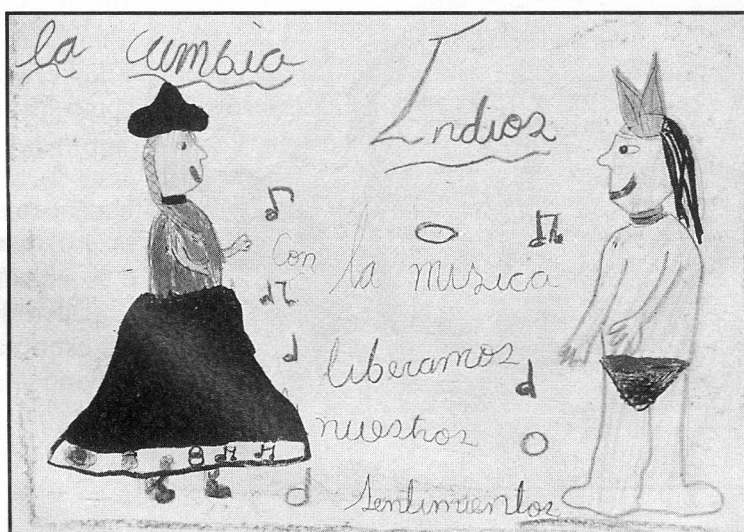 la cumbia
Indios
Con la musica
liberamos
nuestros
sentimientos